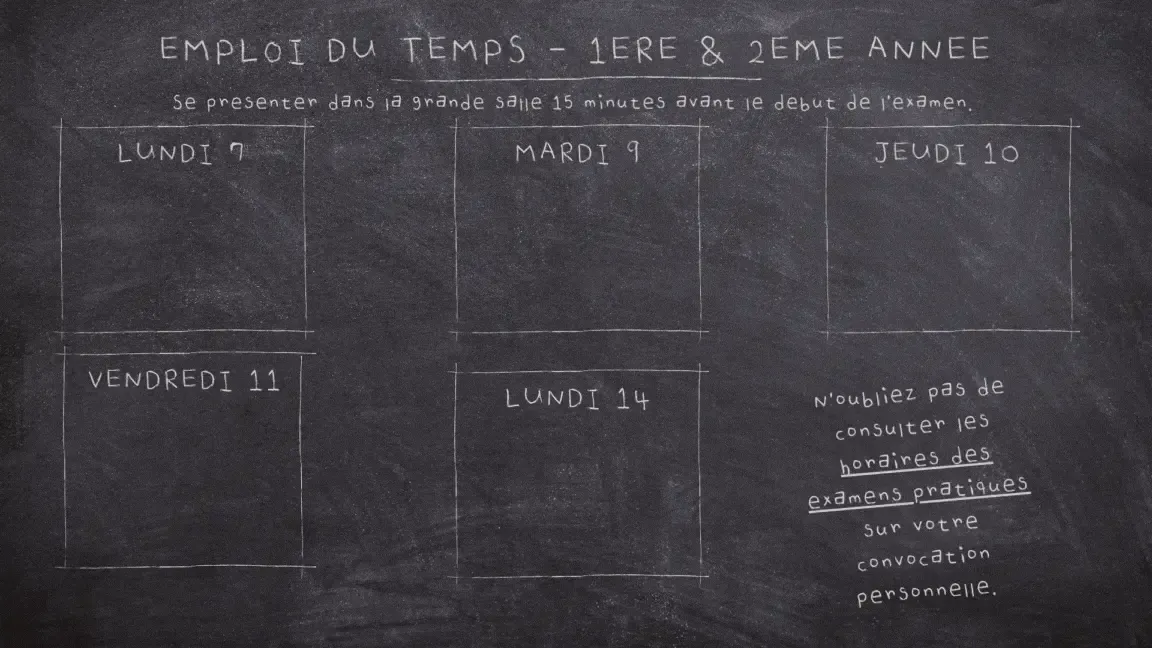 EMPLOI DU TEMPS - 1ERE & 2EME ANNEE
Se presenter dans la grande salle 15 minutes avant le debut de l'examen.
LUNDI 7
MARDI 9
JEUDI 10
VENDREDI 11
LUNDI 14
N'oubliez pas de
consulter les
horaires des
examens pratiques
sur votre
convocation
personnelle.